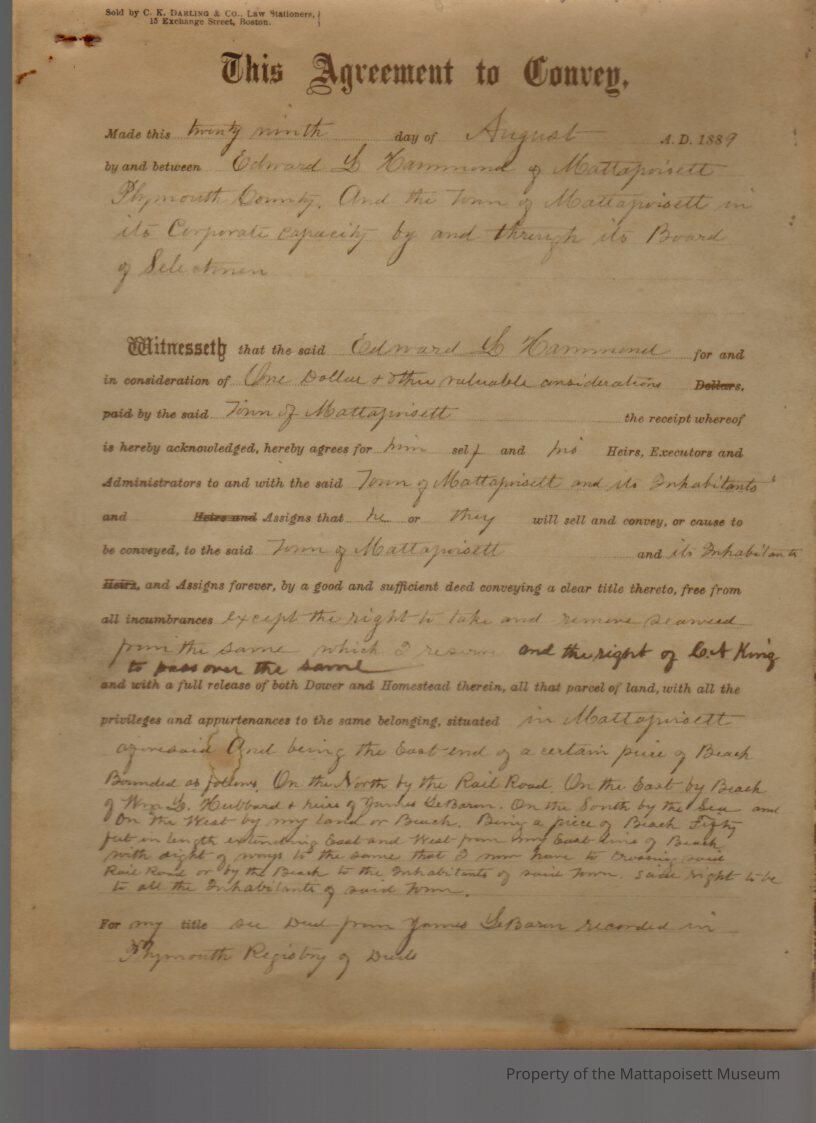 Sold by C. K. DARLING & CO., Law Stationers,
15 Exchange Street, Boston.
This Agreement to Convey,
Made this twenty ninth day of August A. D. 1889
by and between Edward L Hammond of Mattapoisett
Plymouth County. And the Town of Mattapoisett in
its Corporate capacity by and through its Board
of Selectmen
Witnesseth that the said Edward L Hammond for and
in consideration of One Dollar & other valuable considerations Dollars,
paid by the said Town of Mattapoisett the receipt whereof
is hereby acknowledged, hereby agrees for him self and his Heirs, Executors and
Administrators to and with the said Town of Mattapoisett and its Inhabitants
and Heirs and Assigns that he or they will sell and convey, or cause to
be conveyed, to the said Town of Mattapoisett and its Inhabitants
Heirs, and Assigns forever, by a good and sufficient deed conveying a clear title thereto, free from
all incumbrances except the right to take and remove seaweed
from the same which I reserve and the right of C. A King
to pass over the same
and with a full release of both Dower and Homestead therein, all that parcel of land, with all the
privileges and appurtenances to the same belonging, situated in Mattapoisett
aforesaid And being the East end of a certain piece of Beach
Bounded as follows, On the North by the Rail Road. On the East by Beach
of Wm. G. Hubbard & heirs of James LeBaron. On the South by the Sea and
On the West by my land or Beach. Being a piece of Beach Fifty
feet in length extending East and West from my East line of Beach
with right of ways to the same that I now have to crossing said
Rail Road or by the Beach to the Inhabitants of said Town. Said right to be
to all the Inhabitants of said Town.
For my title see Deed from James LeBaron recorded in
Plymouth Registry of Deeds
Property of the Mattapoisett Museum